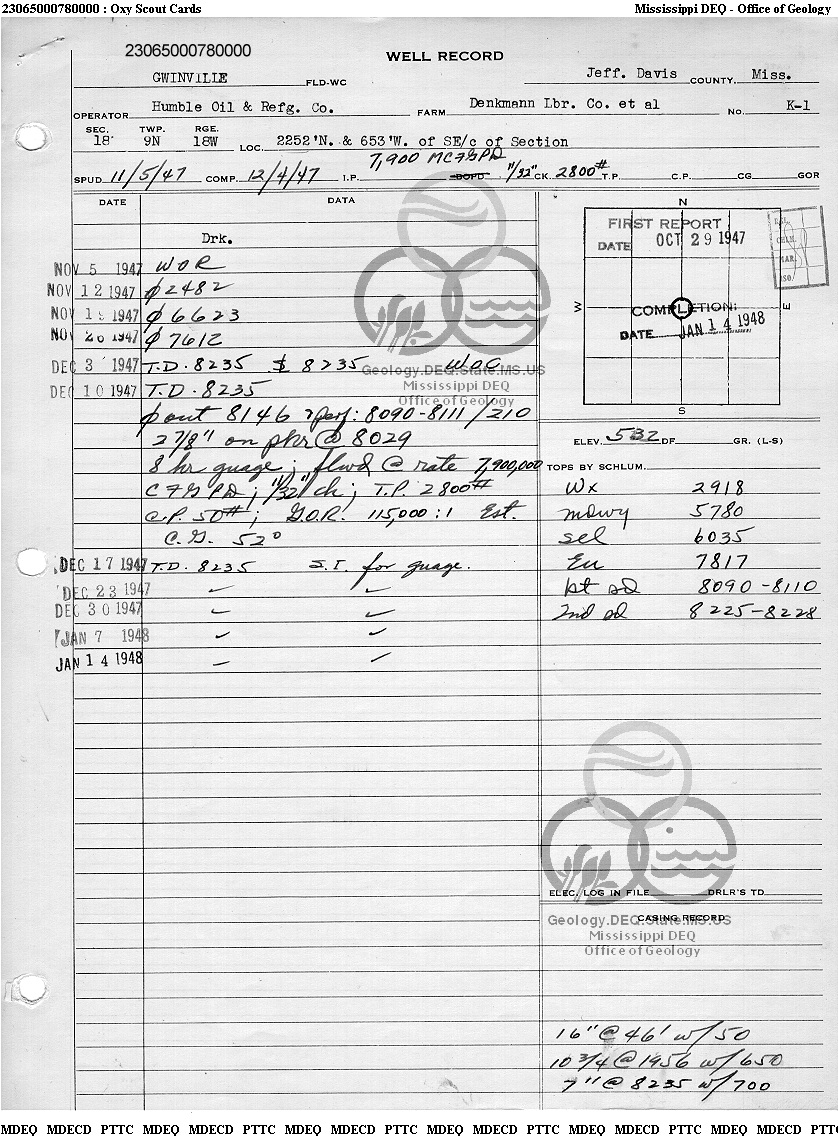 23065000780000 : Oxy Scout Cards Mississippi DEQ - Office of Geology
23065000780000
WELL RECORD
GWINVILLE FLD-WC Jeff. Davis COUNTY Miss.
OPERATOR Humble Oil & Refg. Co. FARM Denkmann Lbr. Co. et al No. K-1
SEC. TWP. RGE.
18 9N 18W LOC. 2252'N. & 653'W. of SE/c of Section
7,900 MCFGPD
SPUD 11/5/47 COMP. 12/4/47 I.P. BOPD 11/32" CK. 2800# T.P. C.P. CG GOR
DATE DATA
Drk.
NOV 5 1947 WOR
NOV 12 1947 ϕ 2482
NOV 19 1947 ϕ 6623
NOV 26 1947 ϕ 7612
DEC 3 1947 T.D. 8235 $ 8235 WOC
DEC 10 1947 T.D. 8235
ϕ out 8146 perf: 8090-8111/210
2 7/8" on pkr @ 8029
8 hr guage; flwd @ rate 7,900,000
CFGPD; 11/32" ch; T.P. 2800#
C.P. 50#; G.O.R. 115,000:1 Est.
C.G. 52°
DEC 17 1947 T.D. 8235 S.I. for guage.
DEC 23 1947 ✓ ✓
DEC 30 1947 ✓ ✓
JAN 7 1948 ✓ ✓
JAN 14 1948 ✓ ✓
N
FIRST REPORT
DATE OCT 29 1947
W E
COMPLETION:
DATE JAN 14 1948
S
ELEV. 532 DF GR. (L-S)
TOPS BY SCHLUM.
Wx 2918
mdwy 5780
sel 6035
Eu 7817
pt sd 8090-8110
2nd sd 8225-8228
Geology.DEQ.State.MS.US
Mississippi DEQ
Office of Geology
ELEC. LOG IN FILE DRLR'S TD
CASING RECORD
Geology.DEQ.State.MS.US
Mississippi DEQ
Office of Geology
16" @ 46' w/50
10 3/4 @ 1956 w/650
7" @ 8235 w/700
MDEQ MDECD PTTC MDEQ MDECD PTTC MDEQ MDECD PTTC MDEQ MDECD PTTC MDEQ MDECD PTTC MDEQ MDECD PTT